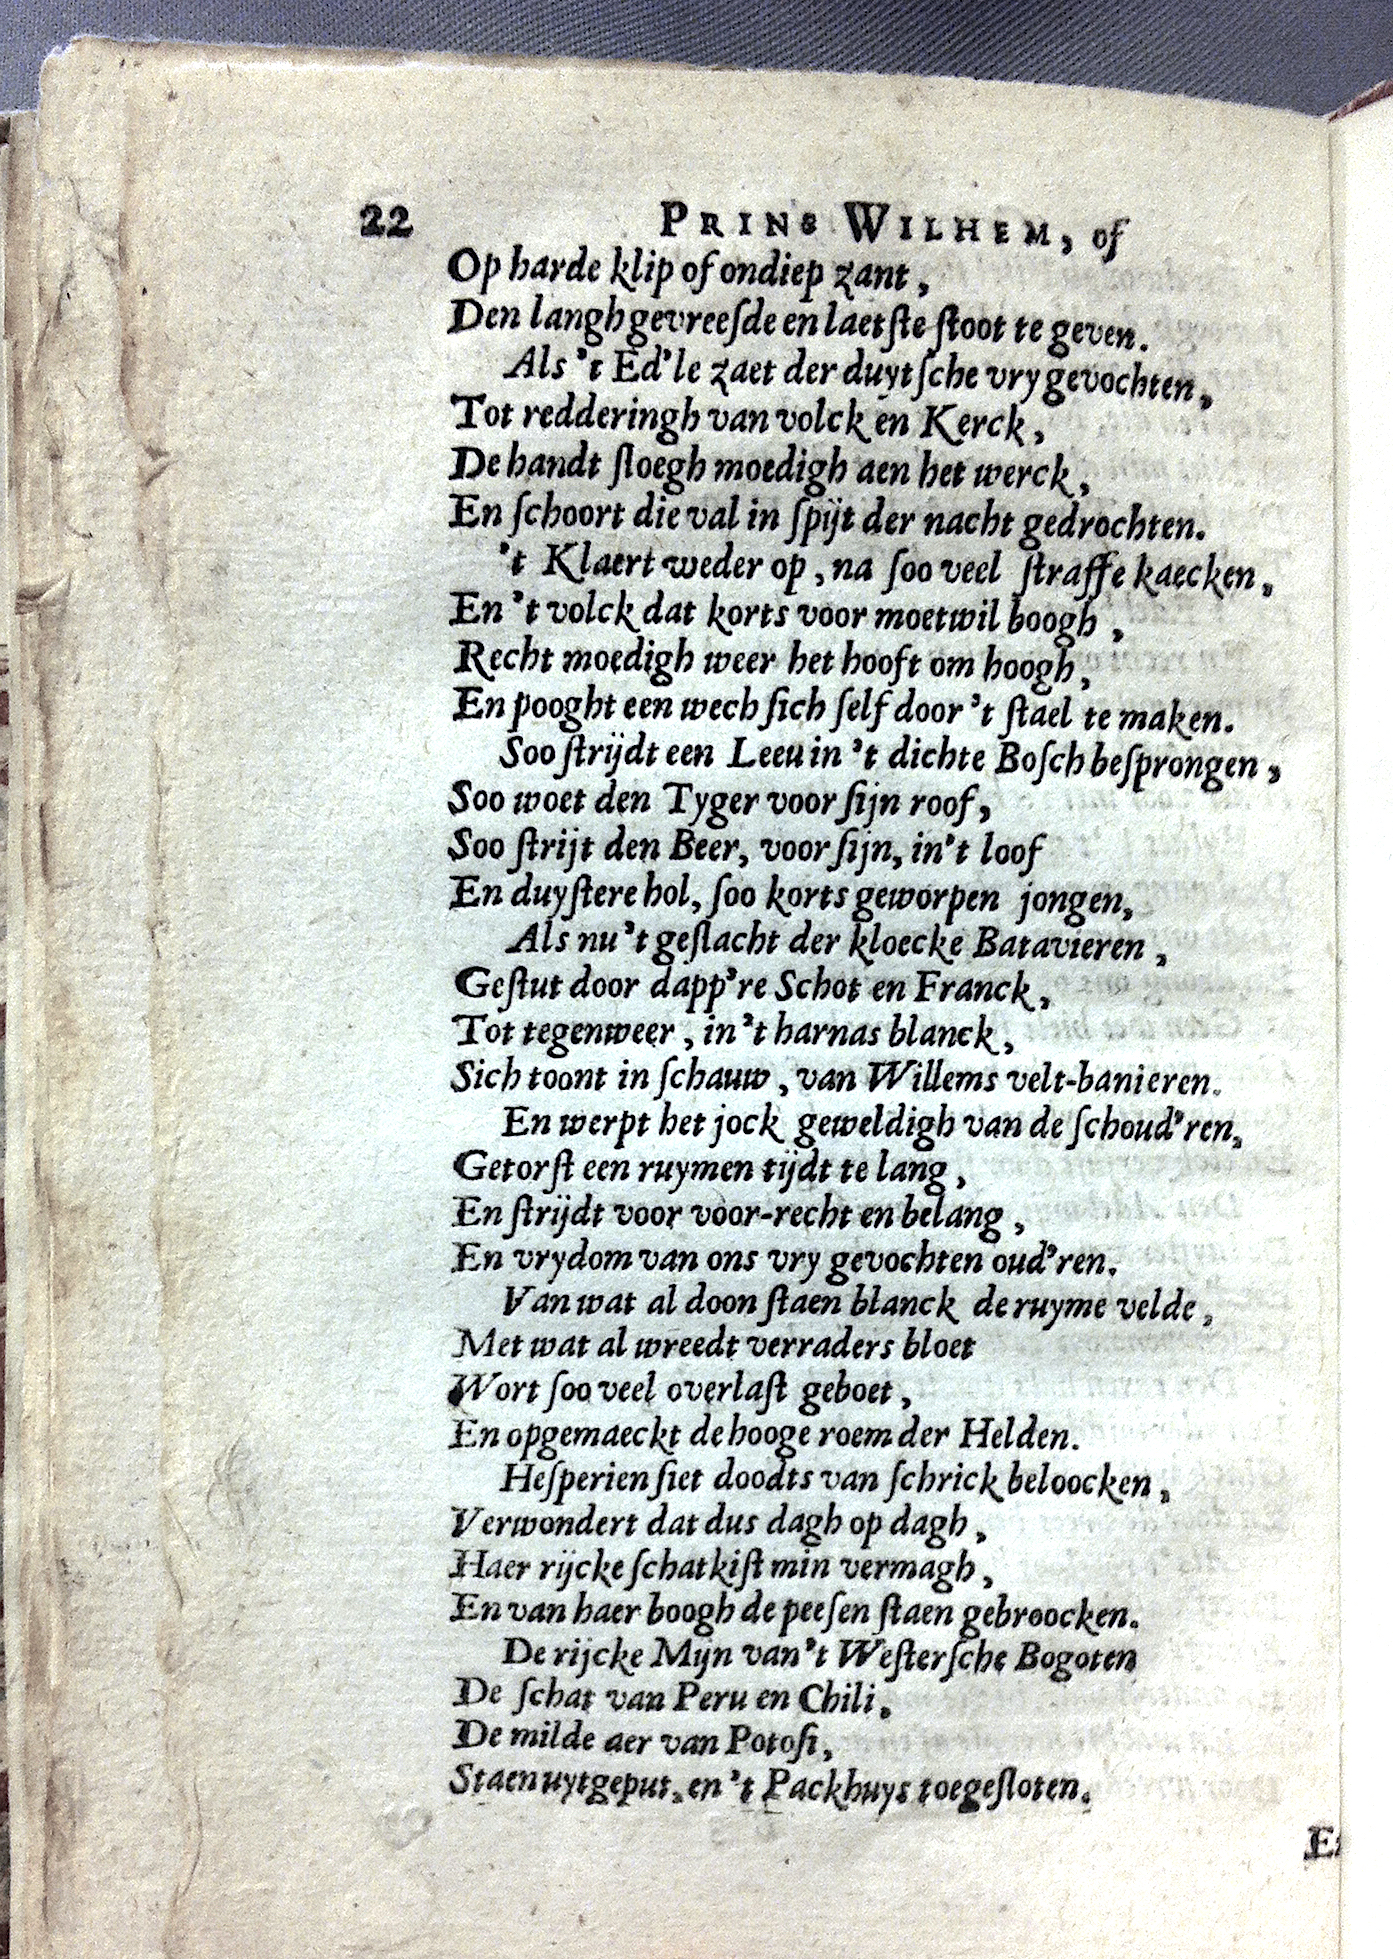 22 PRINS WILHEM, of
Op harde klip of ondiep zant,
Den langh gevreesde en laetste stoot te geven.
Als 't Ed'le zaet der duytsche vry gevochten,
Tot redderingh van volck en Kerck,
De handt sloegh moedigh aen het werck,
En schoort die val in spijt der nacht gedrochten.
't Klaert weder op, na soo veel straffe kaecken,
En 't volck dat korts voor moetwil boogh,
Recht moedigh weer het hooft om hoogh,
En pooght een wech sich self door 't stael te maken.
Soo strijdt een Leeu in 't dichte Bosch besprongen,
Soo woet den Tyger voor sijn roof,
Soo strijt den Beer, voor sijn, in't loof
En duystere hol, soo korts geworpen jongen,
Als nu 't geslacht der kloecke Batavieren,
Gestut door dapp're Schot en Franck,
Tot tegenweer, in 't harnas blanck,
Sich toont in schauw, van Willems velt-banieren.
En werpt het jock geweldigh van de schoud'ren,
Getorst een ruymen tijdt te lang,
En strijdt voor voor-recht en belang,
En vrydom van ons vry gevochten oud'ren.
Van wat al doon staen blanck de ruyme velde,
Met wat al wreedt verraders bloet
Wort soo veel overlast geboet,
En opgemaeckt de hooge roem der Helden.
Hesperien siet doodts van schrick beloocken,
Verwondert dat dus dagh op dagh,
Haer rijcke schatkist min vermagh,
En van haer boogh de peesen staen gebroocken.
De rijcke Mijn van't Westersche Bogoten
De schat van Peru en Chili,
De milde aer van Potosi,
Staen uytgeput, en 't Packhuys toegesloten.